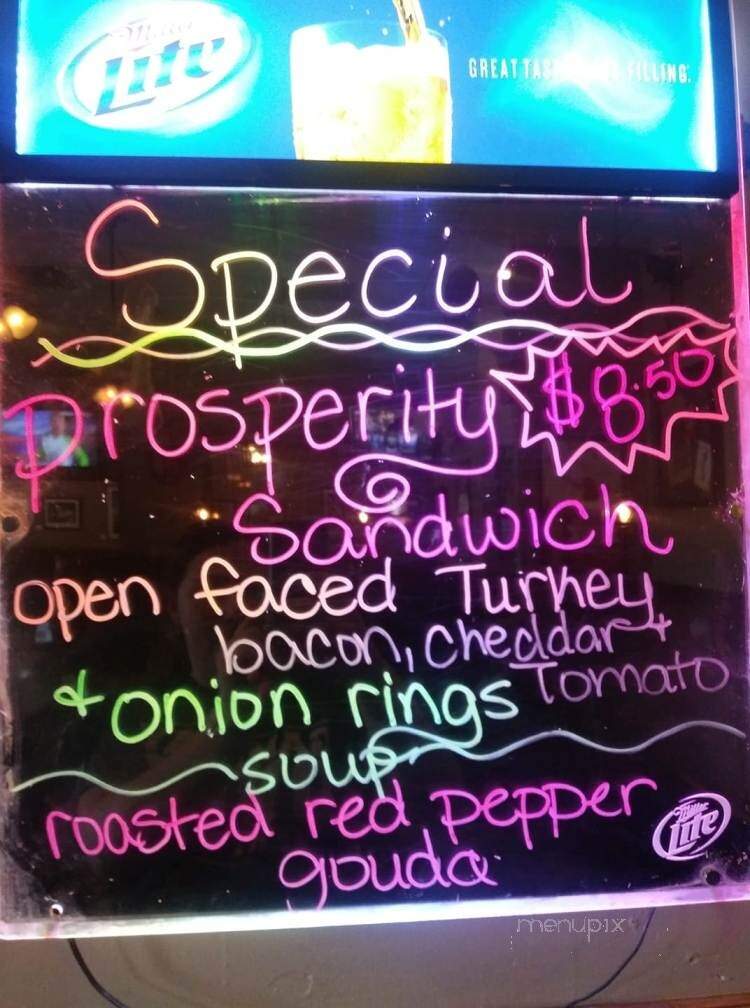 Miller
Lite
GREAT TAS FILLING.
Special
prosperity $8.50
Sandwich
open faced Turkey
bacon, cheddar +
Tomato
& onion rings
soup
roasted red pepper
gouda
Miller
Lite
menupix